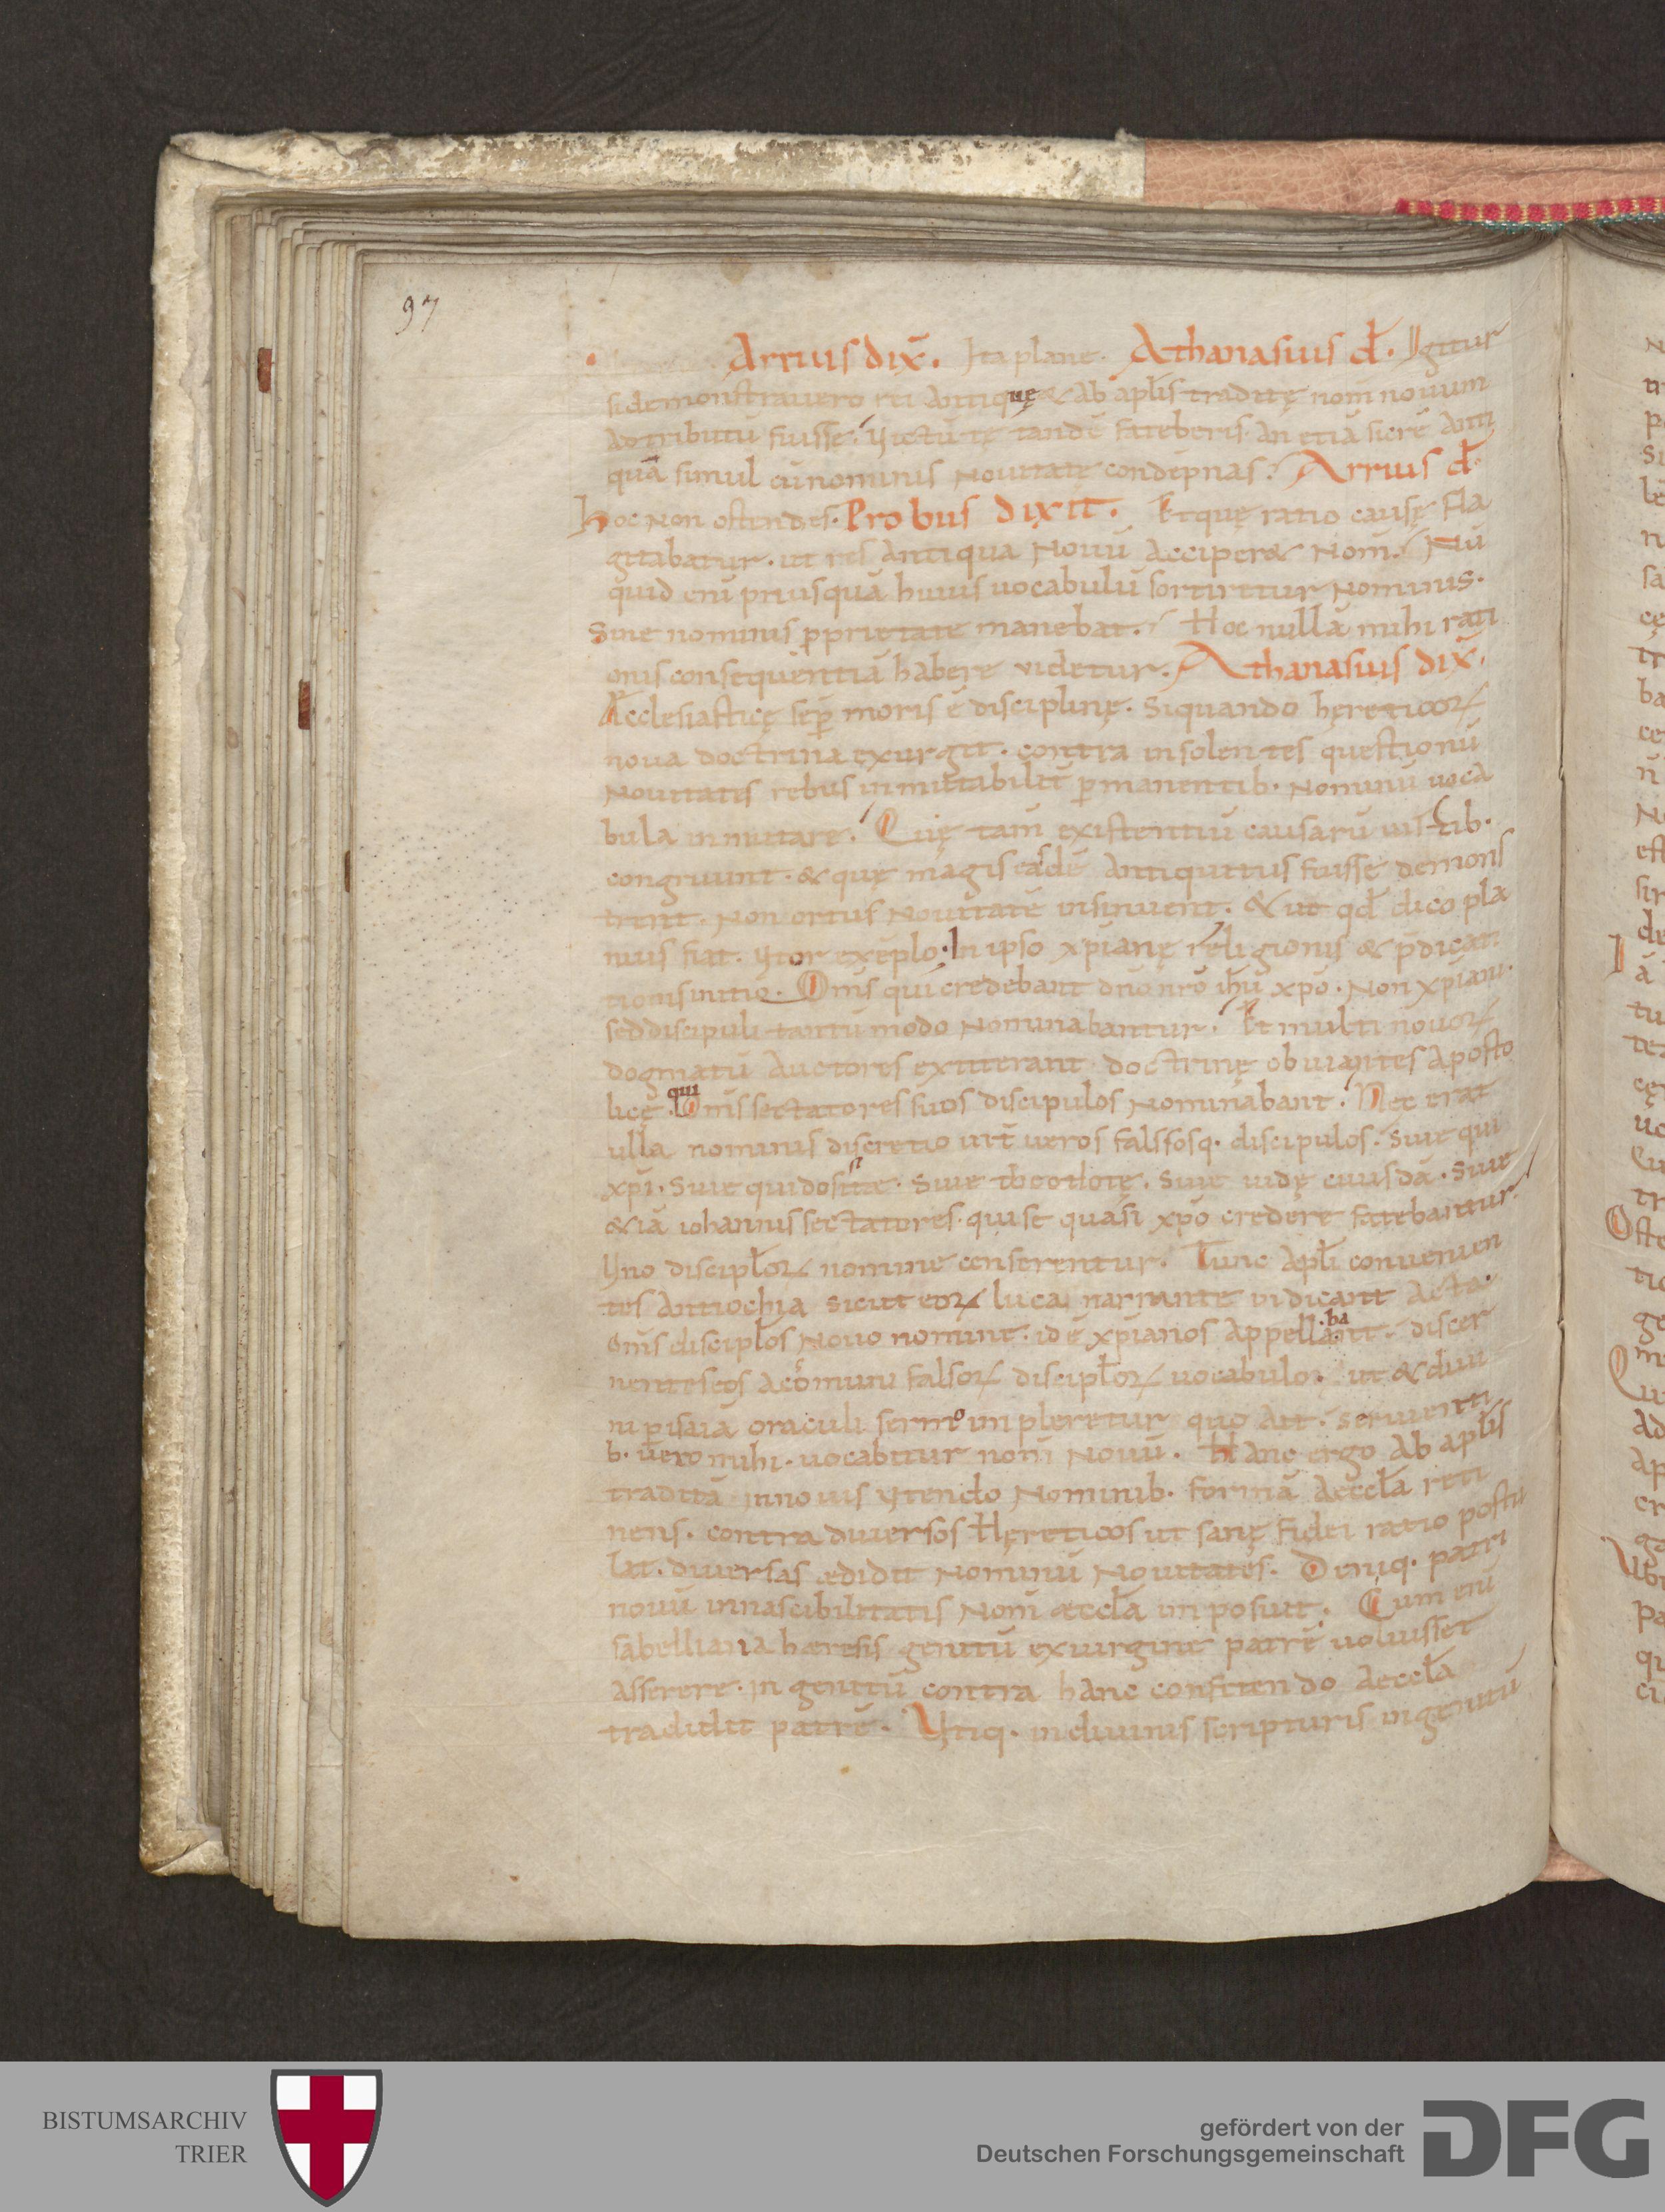 97
Arrius dix̄. Ita plane. Athanasius d̄. Igitur
si demonstrauero rei antiquę & ab apl̄is traditę nom̄ nouum
adtributū fuisse. Victū te tandē fateberis. an etiā si rē anti
quā simul cū nominis nouitate condēpnas. Arrius d̄.
Hoc non ostendes. Probus dixit. Et quę ratio causę fla
gitabatur. ut res antiqua nouū acciper& nom̄. Nū
quid enī priusquā huius uocabulū sortiretur nominis.
Sine nominis pprietate manebat. Hoc nullā mihi rati
onis consequentiā habere videtur. Athanasius dix̄.
Ęcclesiasticę sēp moris ē disciplinę. Siquando hęreticoꝝ
noua doctrina exurgit. contra insolentes questionū
nouitates rebus inmutabilit̄ pmanentib. nominū uoca
bula inmutare. Quę tam̄ existentiū causarū uirtib.
congruunt. & quę magis easdē antiquitus fuisse demons
trent. non ortus nouitatē insinuent. & ut qd̄ dico pla
nius fiat. Vtor exēplo. In ipso xp̄ianę religionis & p̄dicati
tionis initio. Om̄s qui credebant dn̄o nr̄o ih̄u xp̄o. non xp̄iani.
sed discipuli tantū modo nominabantur. Et multi nouoꝝ
dogmatū auctores extiterant doctrinę obuiantes aposto
licę. qui Om̄s sectatores suos discipulos nominabant. Nec erat
ulla nominis discretio int̄ ueros falsosq. discipulos. Siue qui
xp̄i. Siue qui dosi. Siue theodotę. Siue iudę cuiusdā. Siue
&iā iohannis sectatores. qui se quasi xp̄o credere fatebantur.
Vno discipl̄oꝝ nomine censerentur. Tunc apl̄i conuenien
tes antiochia sicut eoꝝ luca narrante indicant acta.
om̄s discipl̄os nouo nomine. id ē xp̄ianos appellabant. discer
nentes eos a cōmuni falsoꝝ discipl̄oꝝ uocabulo. ut & diui
ni p isaiā oraculi sermo inpleretur quo ait. seruienti
b. uero mihi. uocabitur nom̄ nouū. Hanc ergo ab apl̄is
traditā in nouis utendo nominib. formā aeccl̄a reti
nens. contra diuersos hęreticos ut sanę fidei ratio postu
lat. diuersas ędidit nominū nouitates. Deniq. patri
nouū innascibilitatis nom̄ aeccl̄a inposuit. Cum enī
sabelliana haeresis genitū ex uirgine patrē uoluisset
asserere. ingenitū contra hanc confitendo aeccl̄a
tradidit patrē. Vtiq. in diuinis scripturis ingenitū
BISTUMSARCHIV
TRIER
gefördert von der
Deutschen Forschungsgemeinschaft
DFG